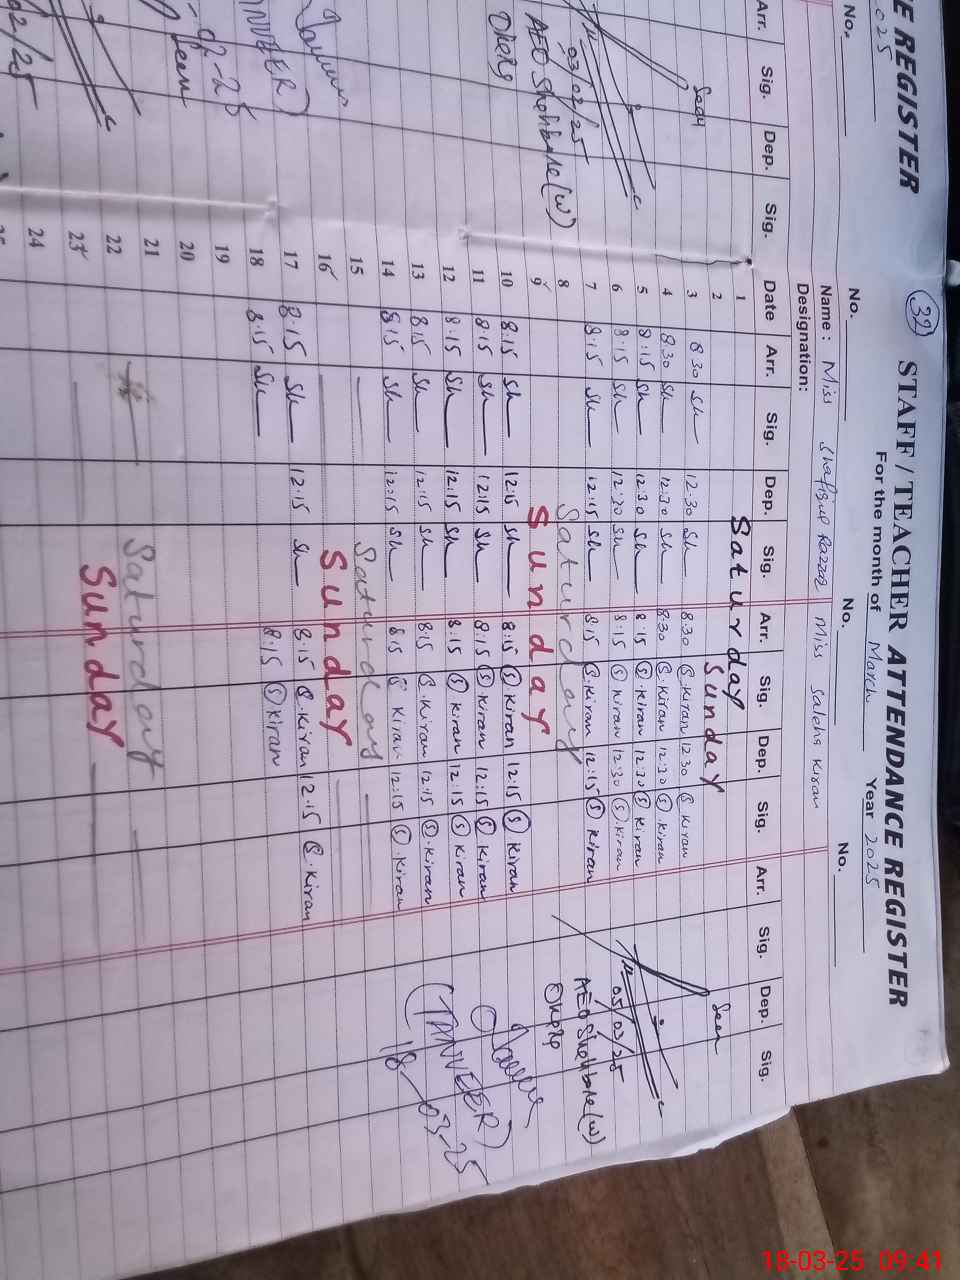 (32) STAFF / TEACHER ATTENDANCE REGISTER
For the month of March Year 2025
No. No. No.
Name : Miss Shafique Razzaq Miss Saleha Kiran
Designation:
Date Arr. Sig. Dep. Sig. Arr. Sig. Dep. Sig. Arr. Sig. Dep. Sig.
1 Saturday
2 Sunday
3 8:30 Sh 12:30 Sh 8:30 S.Kiran 12:30 S.Kiran
4 8:30 Sh 12:30 Sh 8:30 S.Kiran 12:30 S.Kiran
5 8:15 Sh 12:30 Sh 8:15 S.Kiran 12:30 S.Kiran
6 8:15 Sh 12:30 Sh 8:15 S.Kiran 12:30 S.Kiran
7 8:15 Sh 12:15 Sh 8:15 S.Kiran 12:15 S.Kiran
8 Saturday
9 Sunday
10 8:15 Sh 12:15 Sh 8:15 S.Kiran 12:15 S.Kiran
11 8:15 Sh 12:15 Sh 8:15 S.Kiran 12:15 S.Kiran
12 8:15 Sh 12:15 Sh 8:15 S.Kiran 12:15 S.Kiran
13 8:15 Sh 12:15 Sh 8:15 S.Kiran 12:15 S.Kiran
14 8:15 Sh 12:15 Sh 8:15 S.Kiran 12:15 S.Kiran
15 Saturday
16 Sunday
17 8:15 Sh 12:15 Sh 8:15 S.Kiran 12:15 S.Kiran
18 8:15 Sh 8:15 S.Kiran
19
20
21
22 Saturday
23 Sunday
24
25
Seen
05/03/25
AEO Shahbane(w)
Okara
(TANVEER)
18-03-25
E REGISTER
025
No.
Arr. Sig. Dep. Sig.
Seen
03/02/25
AEO Shahbane(w)
Okara
18-03-25 09:41